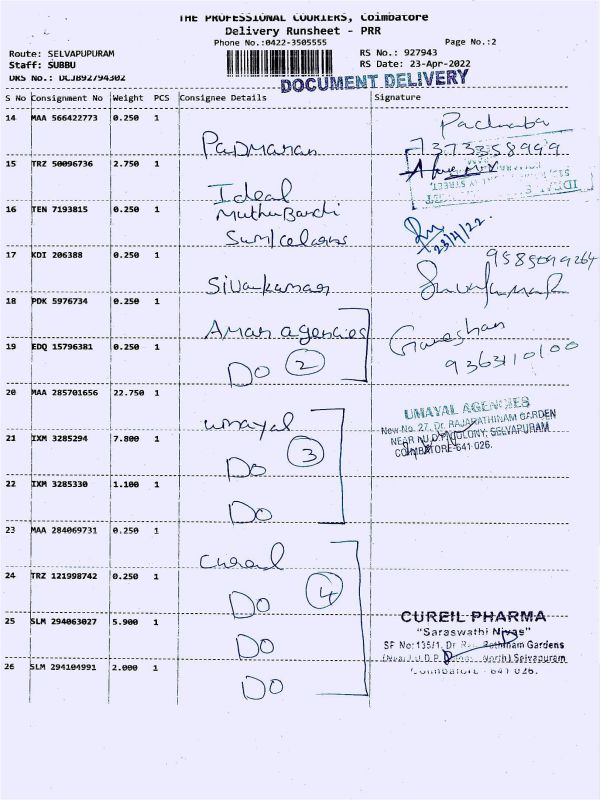 THE PROFESSIONAL COURIERS, Coimbatore
Delivery Runsheet - PRR
Phone No.:0422-3505555
Page No.:2
Route: SELVAPUPURAM
RS No.: 927943
Staff: SUBBU
RS Date: 23-Apr-2022
DRS No.: DCJB92794302
DOCUMENT DELIVERY
S No Consignment No Weight PCS Consignee Details Signature
14 MAA 566422773 0.250 1
Padmaran
7373358999
15 TRZ 50096736 2.750 1
Ideal
16 TEN 7193815 0.250 1
Muthu
23/4/22
17 KDI 206388 0.250 1
Sivankumar
9585099264
18 PDK 5976734 0.250 1
Aman agencies
Ganeshan
9363110100
19 EDQ 15796381 0.250 1
Do 2
20 MAA 285701656 22.750 1
Umayal
UMAYAL AGENCIES
New No. 27, Dr. RAJARATHINAM GARDEN
NEAR COLONY, SELVAPURAM
COIMBATORE-641 026.
21 IXM 3285294 7.800 1
Do 3
22 IXM 3285330 1.100 1
Do
23 MAA 284069731 0.250 1
24 TRZ 121998742 0.250 1
Do 4
25 SLM 294063027 5.900 1
Do
CUREIL PHARMA
"Saraswathi Nivas"
SF No:135/1, Dr Rathinam Gardens
North) Selvapuram
Coimbatore - 641 026.
26 SLM 294104991 2.000 1
Do